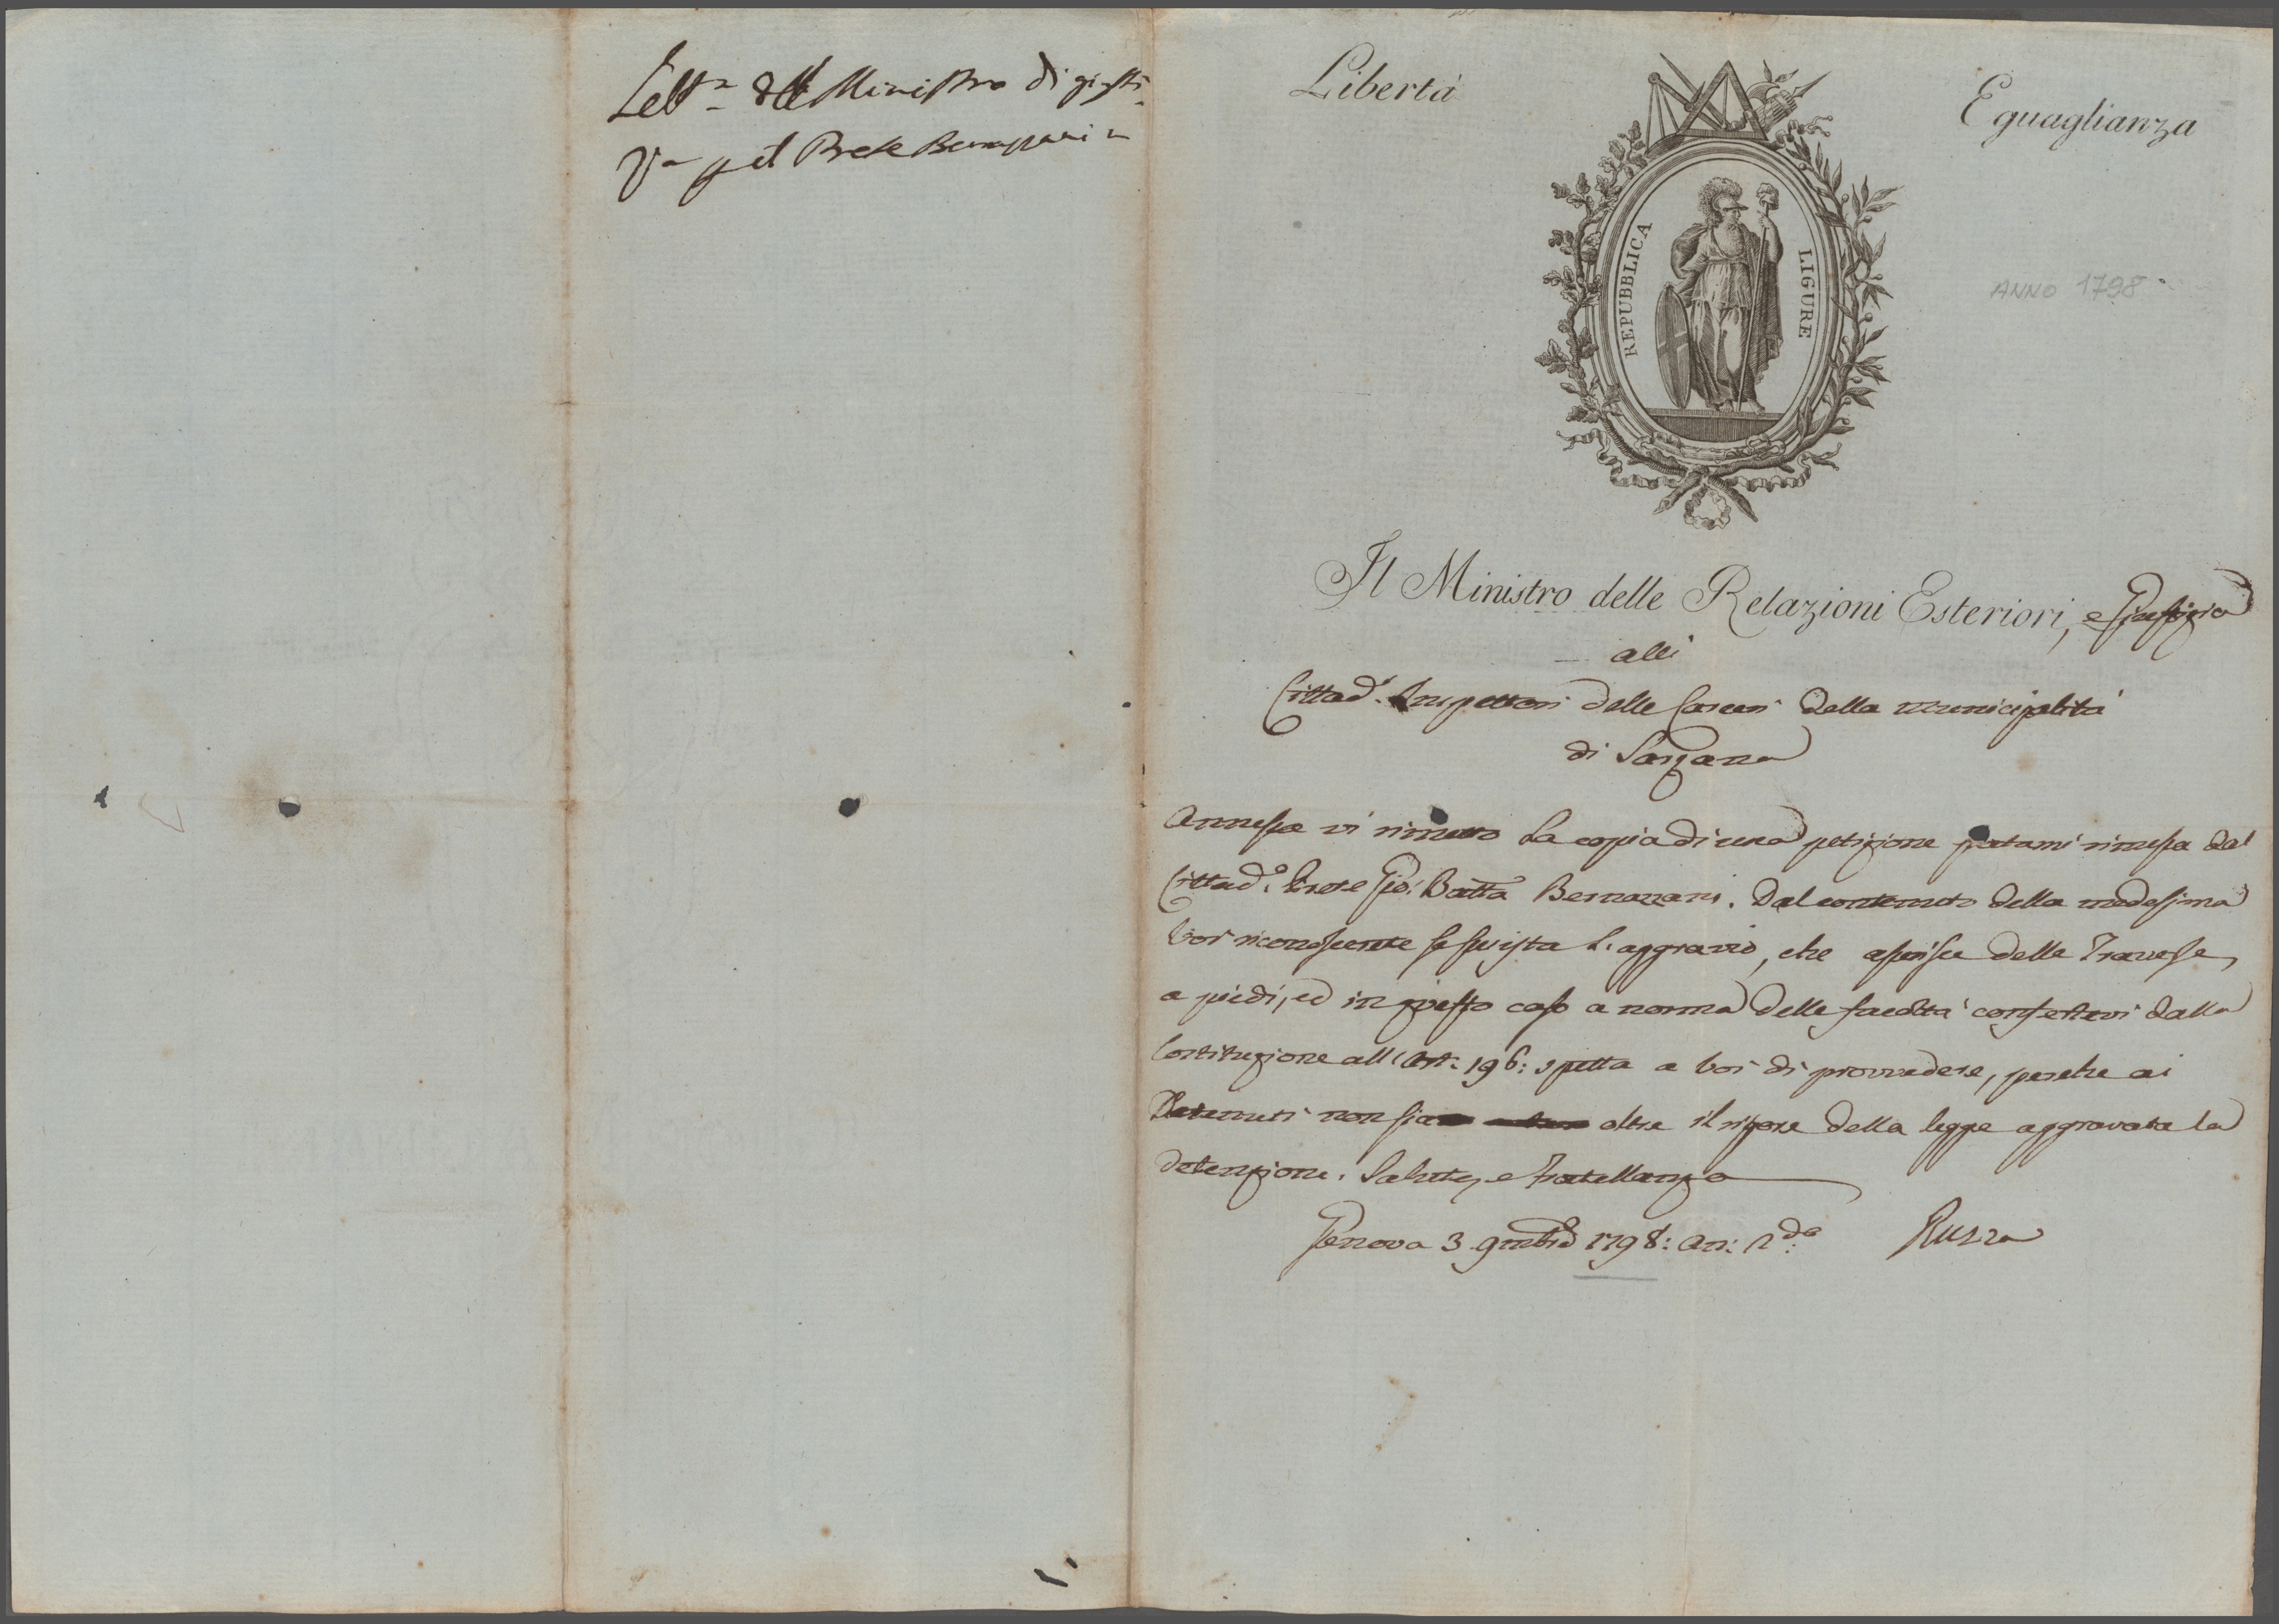 Lett.ª del Ministro di giusti-
ª pel Prete Bernazzani
Libertà
Eguaglianza
REPUBBLICA LIGURE
ANNO 1798
Il Ministro delle Relazioni Esteriori, e Giustizia
alli
Cittad.i Inspettori delle Carceri della Municipalità
di Sarzana
Annessa vi rimetto la copia di una petizione statami rimessa dal
Cittad.o Prete Gio: Batta Bernazzani. Dal contenuto della medesima
voi riconoscerete se sussista l'aggravio, che asserisce delle Traverse
a piedi, ed in questo caso a norma delle facoltà conferitevi dalla
Costituzione all'Art: 196: spetta a voi di provvedere, perche ai
Detenuti non sia oltre il rigore della legge aggravata la
detenzione. Salute, e Fratellanza
Genova 3 9mbre 1798: an: 2.do
Ruzza